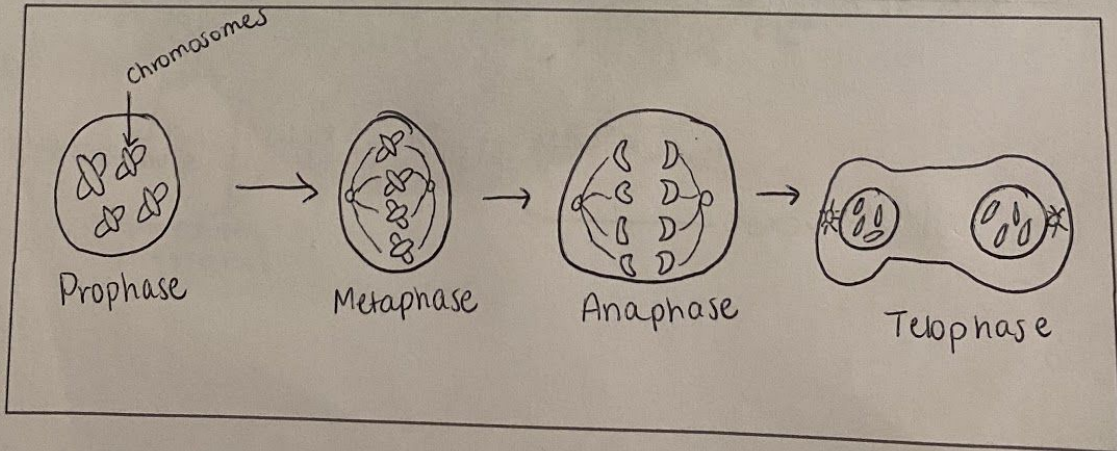 chromosomes
Prophase
Metaphase
Anaphase
Telophase